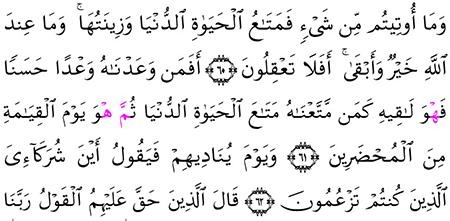 وَمَا أُوتِيتُم مِّن شَىْءٍ فَمَتَٰعُ ٱلْحَيَوٰةِ ٱلدُّنْيَا وَزِينَتُهَا ۚ وَمَا عِندَ
ٱللَّهِ خَيْرٌ وَأَبْقَىٰٓ ۚ أَفَلَا تَعْقِلُونَ ۝٦٠ أَفَمَن وَعَدْنَٰهُ وَعْدًا حَسَنًا
فَهْوَ لَٰقِيهِ كَمَن مَّتَّعْنَٰهُ مَتَٰعَ ٱلْحَيَوٰةِ ٱلدُّنْيَا ثُمَّ هْوَ يَوْمَ ٱلْقِيَٰمَةِ
مِنَ ٱلْمُحْضَرِينَ ۝٦١ وَيَوْمَ يُنَادِيهِمْ فَيَقُولُ أَيْنَ شُرَكَآءِىَ
ٱلَّذِينَ كُنتُمْ تَزْعُمُونَ ۝٦٢ قَالَ ٱلَّذِينَ حَقَّ عَلَيْهِمُ ٱلْقَوْلُ رَبَّنَا